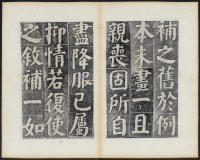 補之舊於例
本未盡一且
親喪固所自
盡降服已屬
抑情若復使
之敘補一如